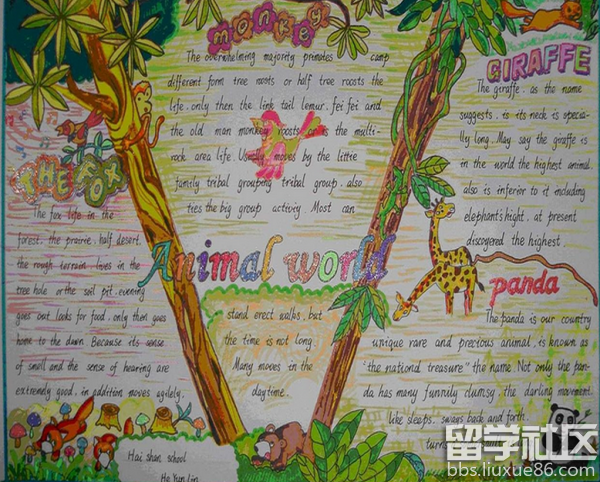 monkey
The overwhelming majority primates camp
different form tree roots or half tree roosts the
life. only then the link tail lemur. fei fei and
the old man monkey roosts or is the multi-
rock area life. Usually moves by the little
family tribal grouping tribal group. also
ties the big group activiy. Most can
Animal world
stand erect walks. but
the time is not long
Many moves in the
daytime.
THE FOX
The fox life in the
forest. the prairie. half desert
the rough terrain lives in the
tree hole or the soil pit. evening
goes out looks for food. only then goes
home to the dawn. Because its sense
of smell and the sense of hearing are
extremely good. in addition moves agilely.
GIRAFFE
The giraffe. as the name
suggests. is its neck is specia-
lly long. May say the giraffe is
in the world the highest animal.
also is inferior to it including
elephant's hight. at present
discovered the highest.
panda
The panda is our country
unique rare and precious animal. is known as
"the national treasure" the name. Not only the pan-
da has many funnily clumsy the darling movement
like sleeps. sways back and forth.
turns
Hai shan school
He Yun Lin
留学社区
bbs.liuxue86.com